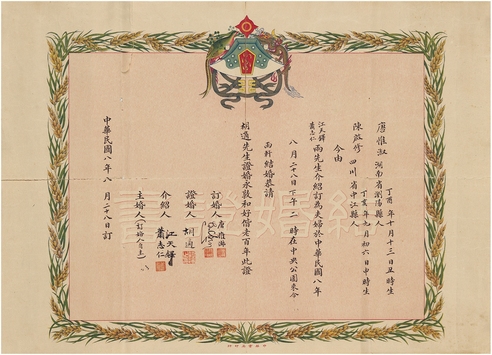 唐惟淑 湖南省瀏陽縣人 丁酉年十月十三日丑時生
陳啟修 四川省中江縣人 丁亥年九月初六日中時生
今由
江天鐸 蕭志仁 兩先生介紹訂為夫婦於中華民國八年
八月二十八日下午二時在中央公園來今
雨軒結婚恭請
胡適先生證婚永敦和好偕老百年此證
訂婚人 唐惟淑
證婚人 胡適
介紹人 江天鐸 蕭志仁
主婚人(訂婚人自主)
中華民國八年八月二十八日訂
結婚證書